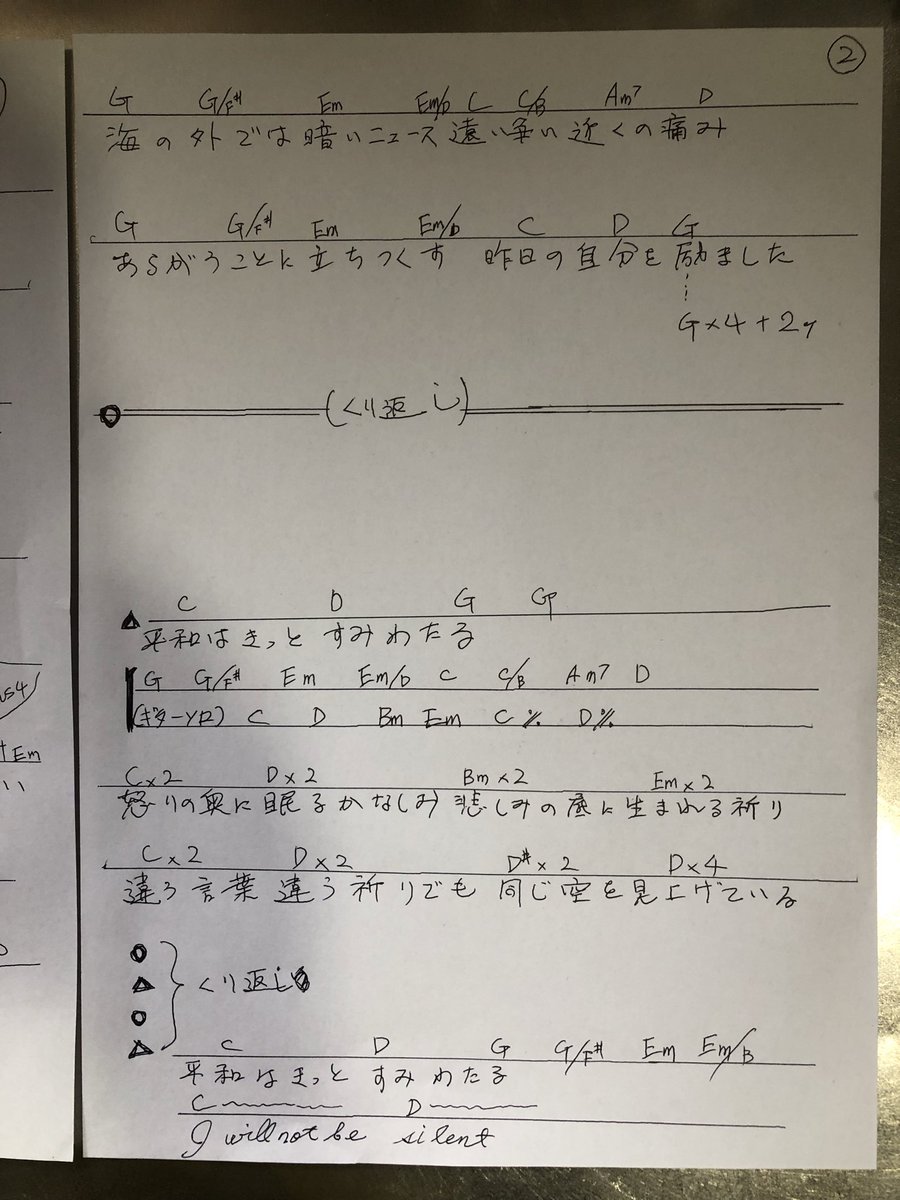 ②
G G/F# Em Em/D C C/B Am7 D
海の外では暗いニュース 遠い争い 近くの痛み
G G/F# Em Em/D C D G
あらがうことに立ちつくす 昨日の自分を励ました
G×4+2
(くり返し)
C D G
平和はきっと すみわたる
G G/F# Em Em/D C C/B Am7 D
(ギターソロ) C D Bm Em C % D %
C×2 D×2 Bm×2 Em×2
怒りの奥に眠るかなしみ 悲しみの底に生まれる祈り
C×2 D×2 D#×2 D×4
違う言葉 違う祈りでも 同じ空を見上げている
○
▲
○
▲
くり返し
C D G G/F# Em Em/B
平和はきっと すみわたる
C D
I will not be silent
us4
Em